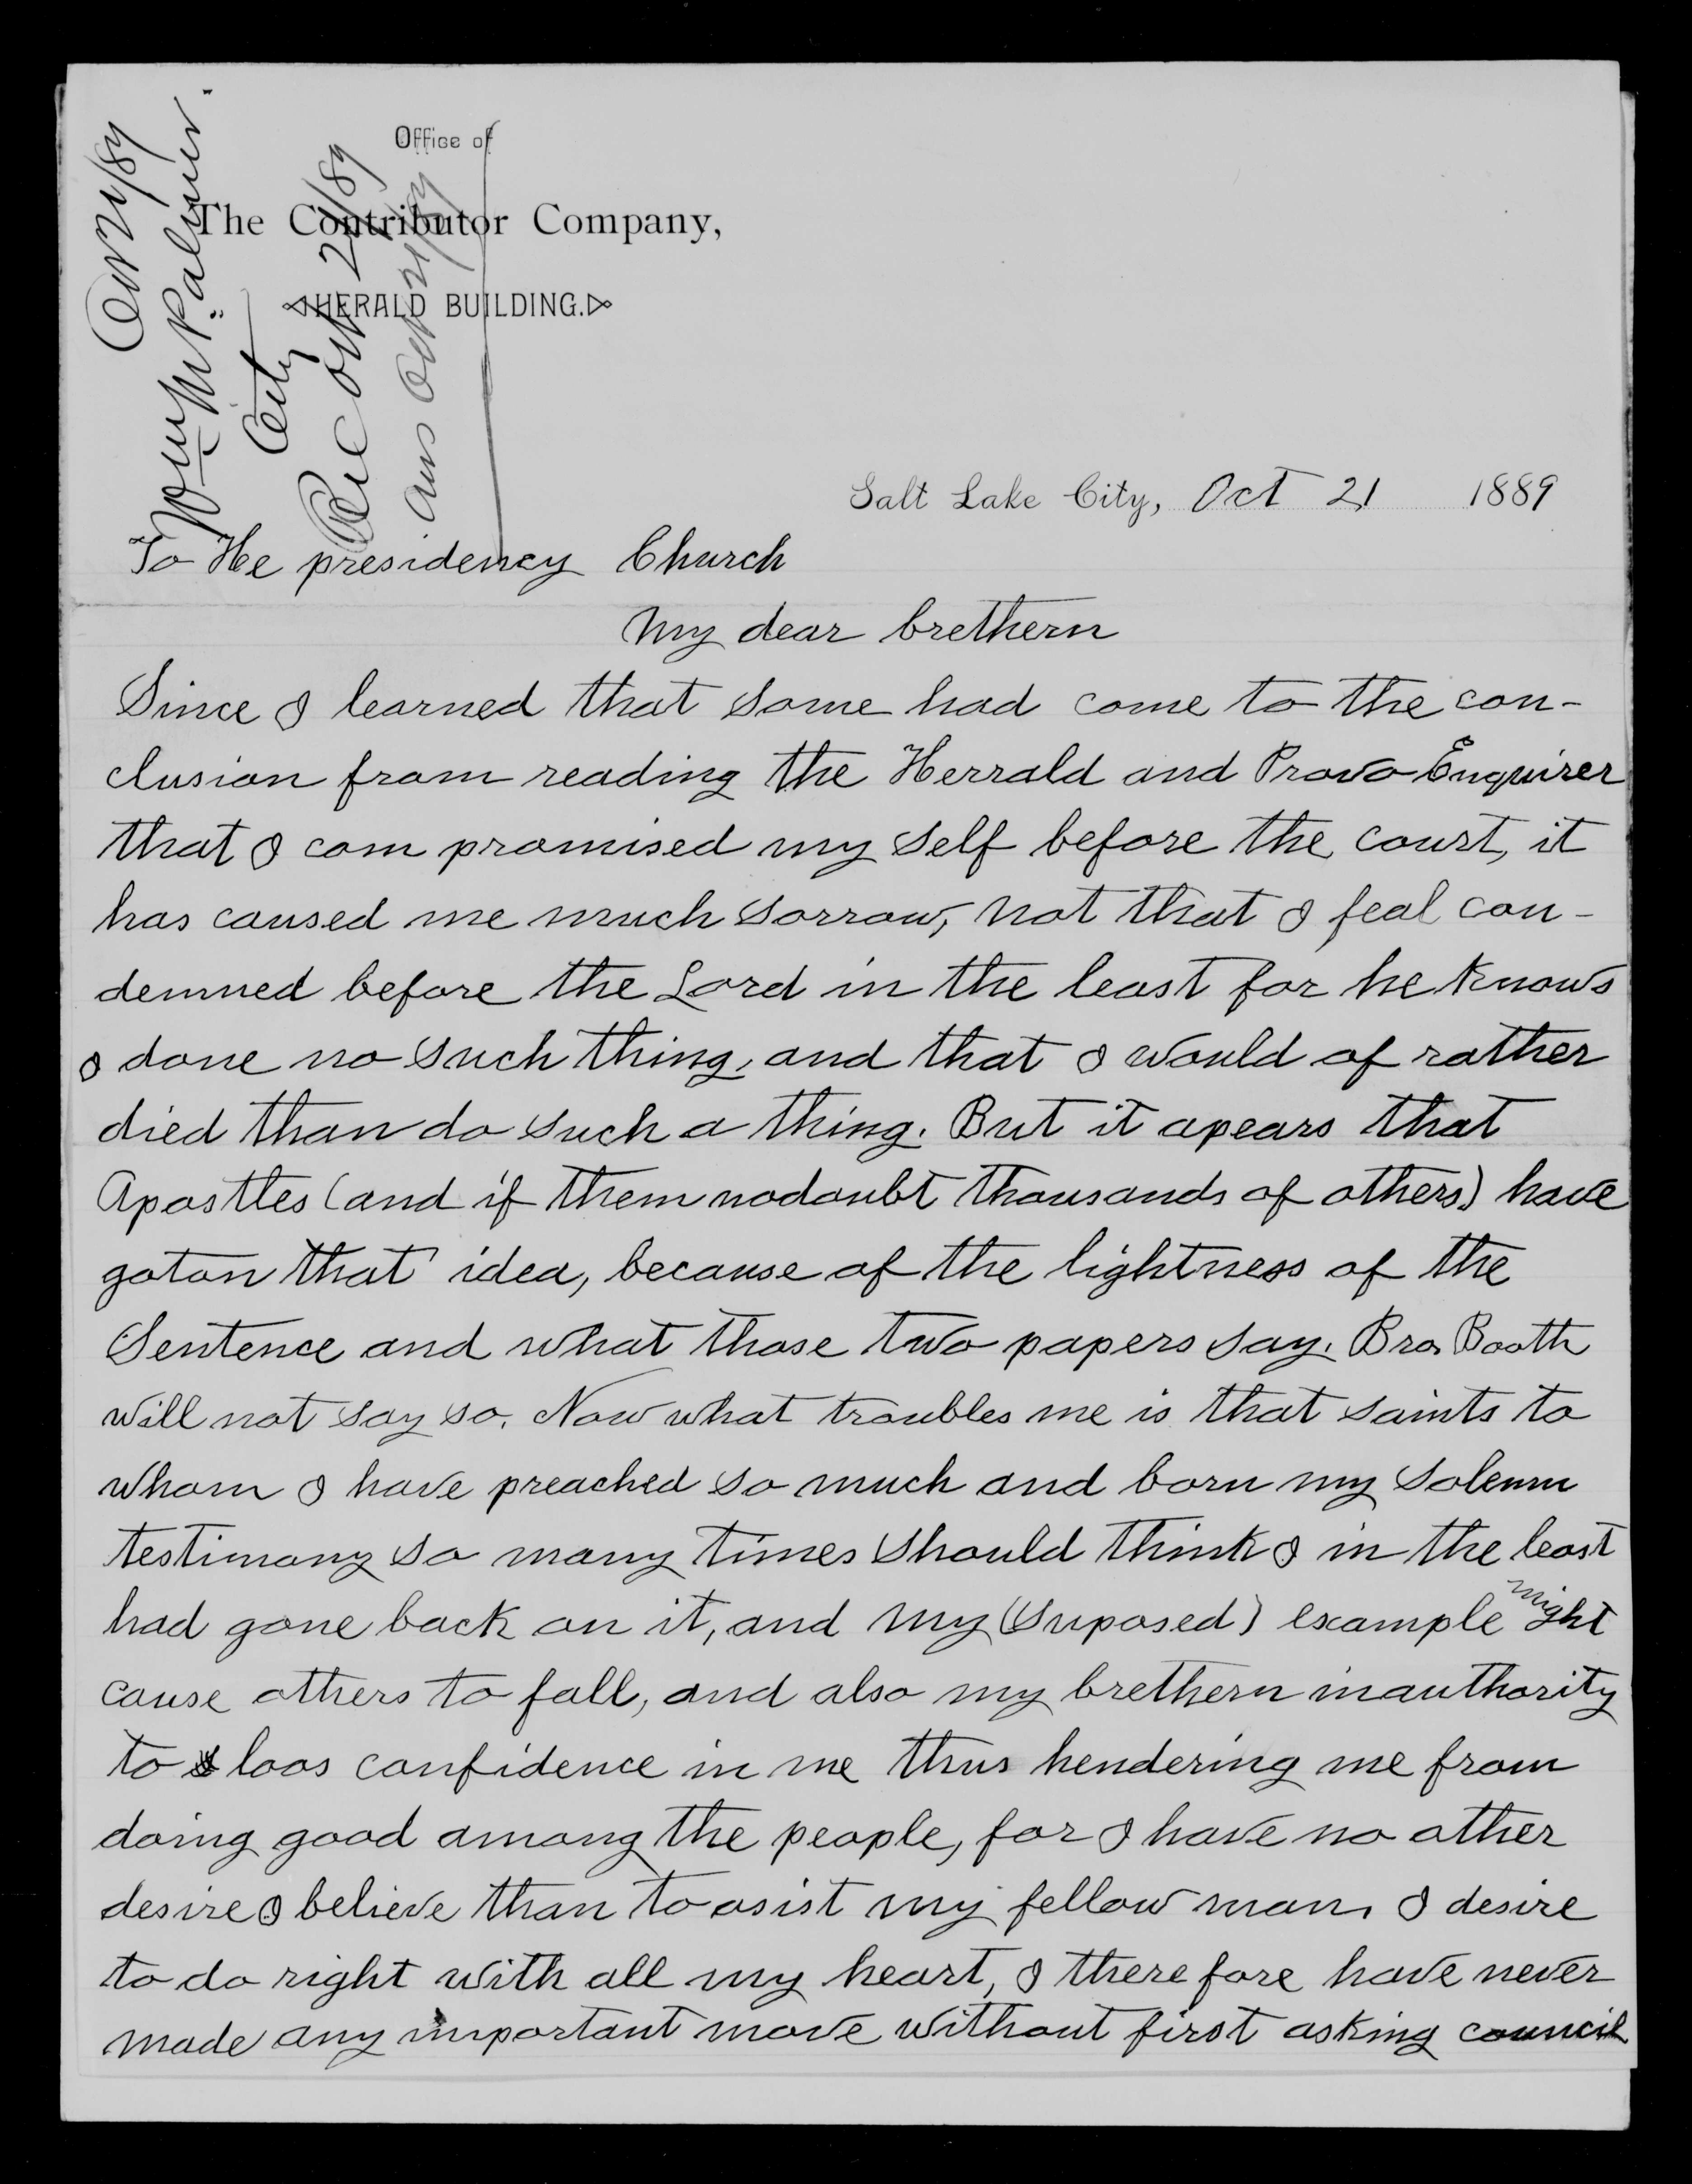 Office of
The Contributor Company,
HERALD BUILDING.
Oct 21/89
Wm M. Palmer.
City
Rec Oct 21/89
Ans Oct 21/89
Salt Lake City, Oct 21 1889
To He presidency Church
My dear brethern
Since I learned that some had come to the con-
clusion from reading the Herrald and Provo Enquirer
that I com promised my self before the court, it
has caused me much sorrow, not that I feal con-
demned before the Lord in the least for he knows
I done no such thing, and that I would of rather
died than do such a thing. But it apears that
Apostles (and if them nodoubt thousands of others) have
goton that idea, because of the lightness of the
Sentence and what those two papers say. Bro. Booth
will not say so. Now what troubles me is that saints to
whom I have preached so much and born my solemn
testimony so many times should think I in the least
had gone back on it, and my (suposed) example might
cause others to fall, and also my brethern inauthority
to loos confidence in me thus hendering me from
doing good among the people, for I have no other
desire I believe than to asist my fellow man, I desire
to do right with all my heart, I there fore have never
made any important move without first asking council